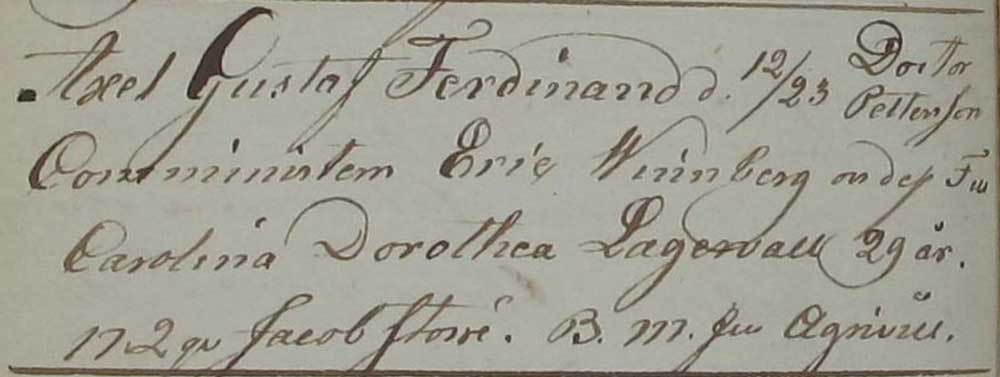 Axel Gustaf Ferdinand d. 12/23 Doctor Petterson
Comministern Eric Winnberg och dess Fru
Carolina Dorothea Lagerwall 29 år.
N 2 qv Jacob B. M. fru